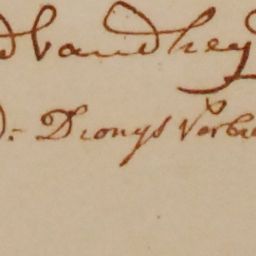 dvandhey
D:- Dionys Verbi